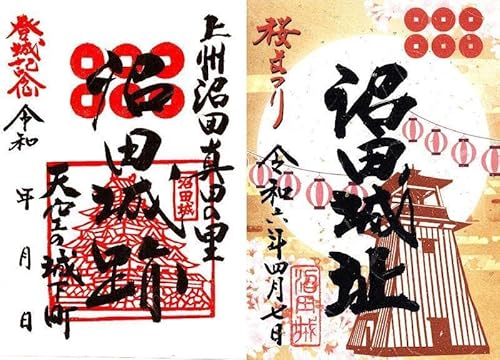 上州沼田真田の里
沼田城跡
沼田城
天空の城下町
登城記念
令和 年 月 日
桜まつり
沼田城址
令和六年四月七日
沼田城